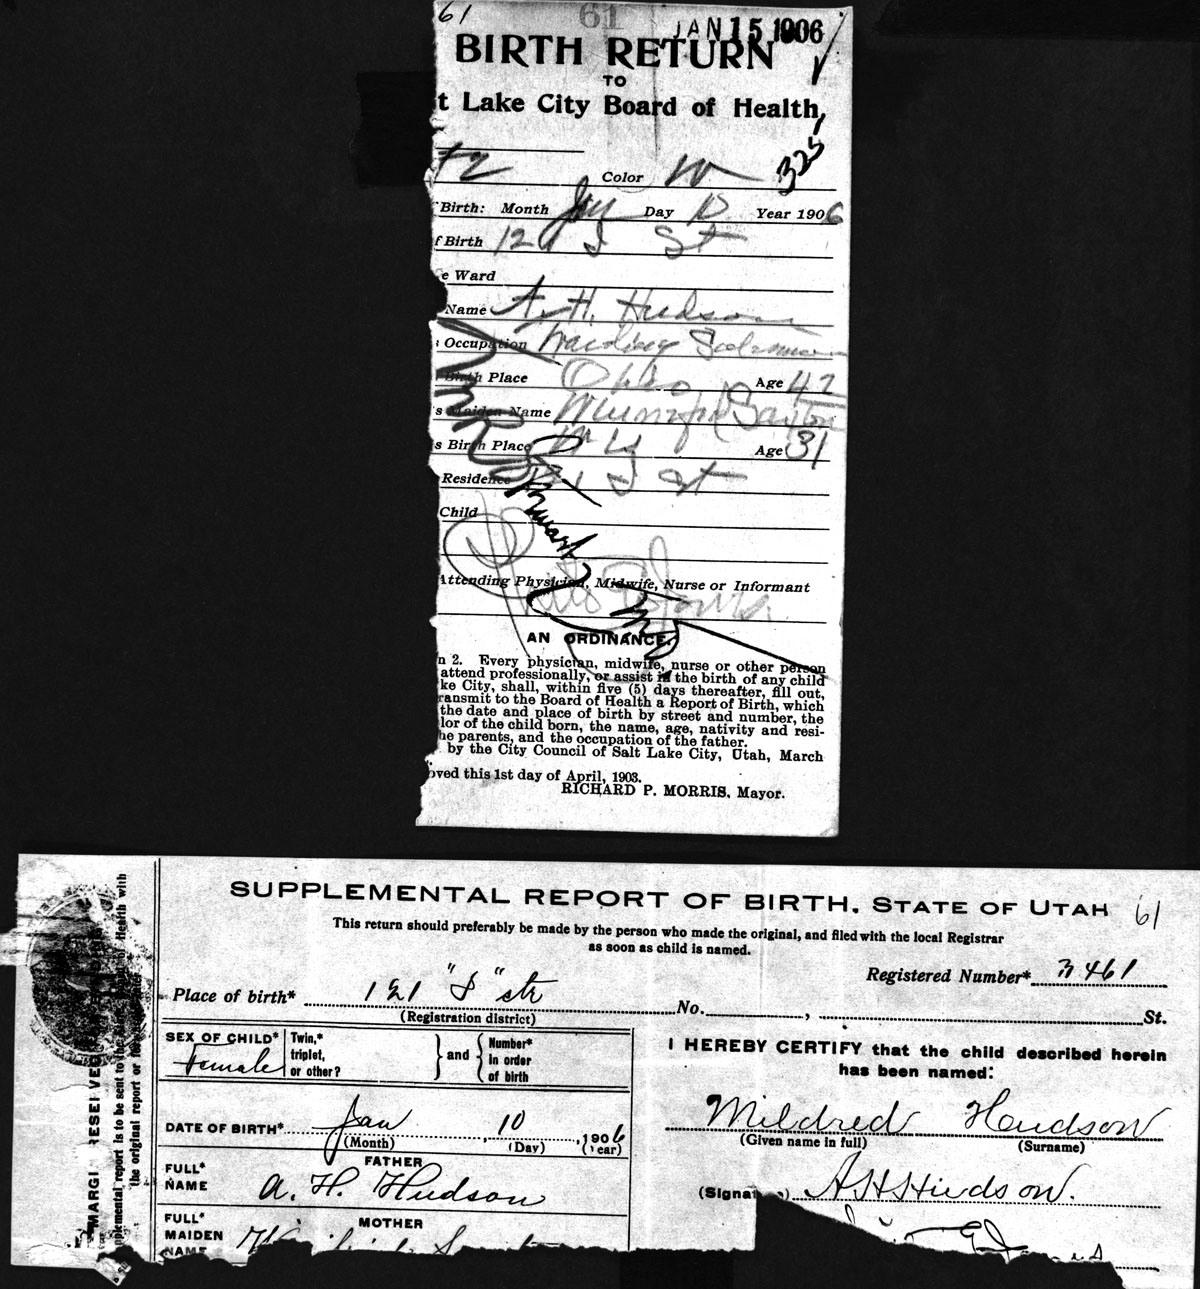 61
61
JAN 15 1906
BIRTH RETURN
TO
t Lake City Board of Health,
325
Color W
f Birth: Month Jan Day 10 Year 1906
f Birth 121 I St
e Ward
Name A. H. Hudson
s Occupation Traveling Salesman
Birth Place Ohio Age 42
s Maiden Name Saxton
s Birth Place Age 31
Residence I St
Child
Attending Physician, Midwife, Nurse or Informant
AN ORDINANCE.
n 2. Every physician, midwife, nurse or other person
attend professionally, or assist in the birth of any child
ke City, shall, within five (5) days thereafter, fill out,
ransmit to the Board of Health a Report of Birth, which
the date and place of birth by street and number, the
lor of the child born, the name, age, nativity and resi-
he parents, and the occupation of the father.
by the City Council of Salt Lake City, Utah, March
oved this 1st day of April, 1903.
RICHARD P. MORRIS, Mayor.
SUPPLEMENTAL REPORT OF BIRTH, STATE OF UTAH 61
This return should preferably be made by the person who made the original, and filed with the local Registrar
as soon as child is named.
Registered Number* 3461
Place of birth* 121 "I" str No. , St.
(Registration district)
SEX OF CHILD* Female
Twin,* triplet, or other? } and { Number* in order of birth
I HEREBY CERTIFY that the child described herein
has been named:
DATE OF BIRTH* Jan , 10 , 1906
(Month) (Day) (Year)
Mildred Hudson
(Given name in full) (Surname)
FATHER
FULL* NAME A. H. Hudson
(Signat A H Hudson.
MOTHER
FULL* MAIDEN NAME
MARGI RESE VE
pplemental report is to be sent to the of Health with
the original report or